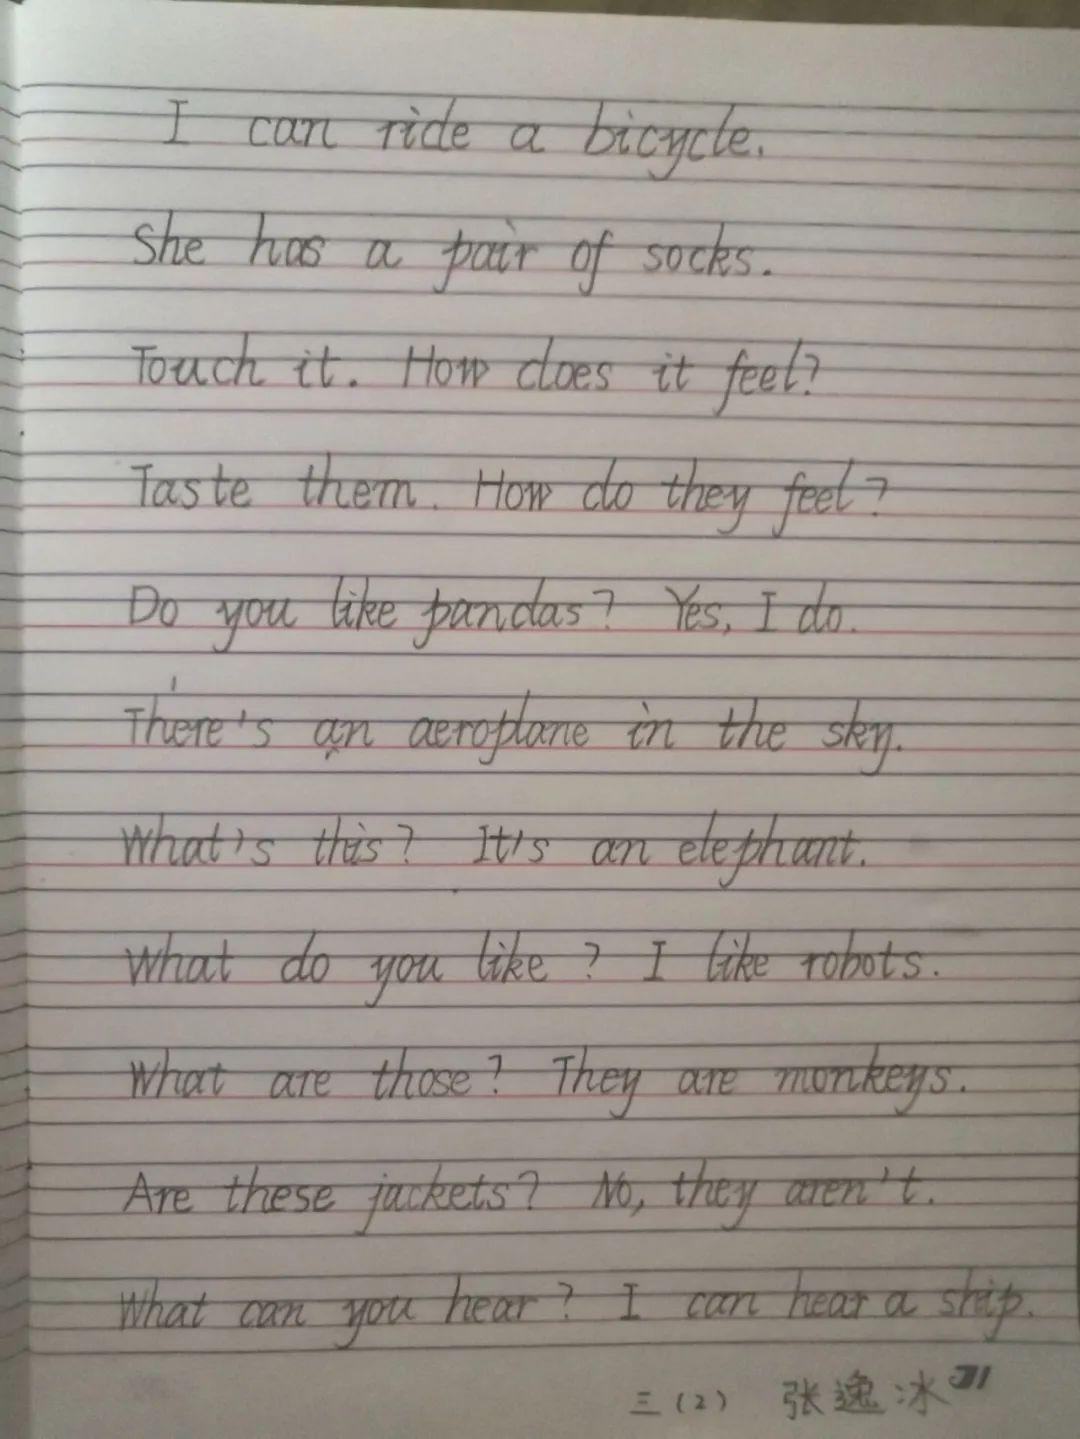 I can ride a bicycle.
She has a pair of socks.
Touch it. How does it feel?
Taste them. How do they feel?
Do you like pandas? Yes, I do.
There's an aeroplane in the sky.
What's this? It's an elephant.
What do you like? I like robots.
What are those? They are monkeys.
Are these jackets? No, they aren't.
What can you hear? I can hear a ship.
三(2) 张逸冰 31